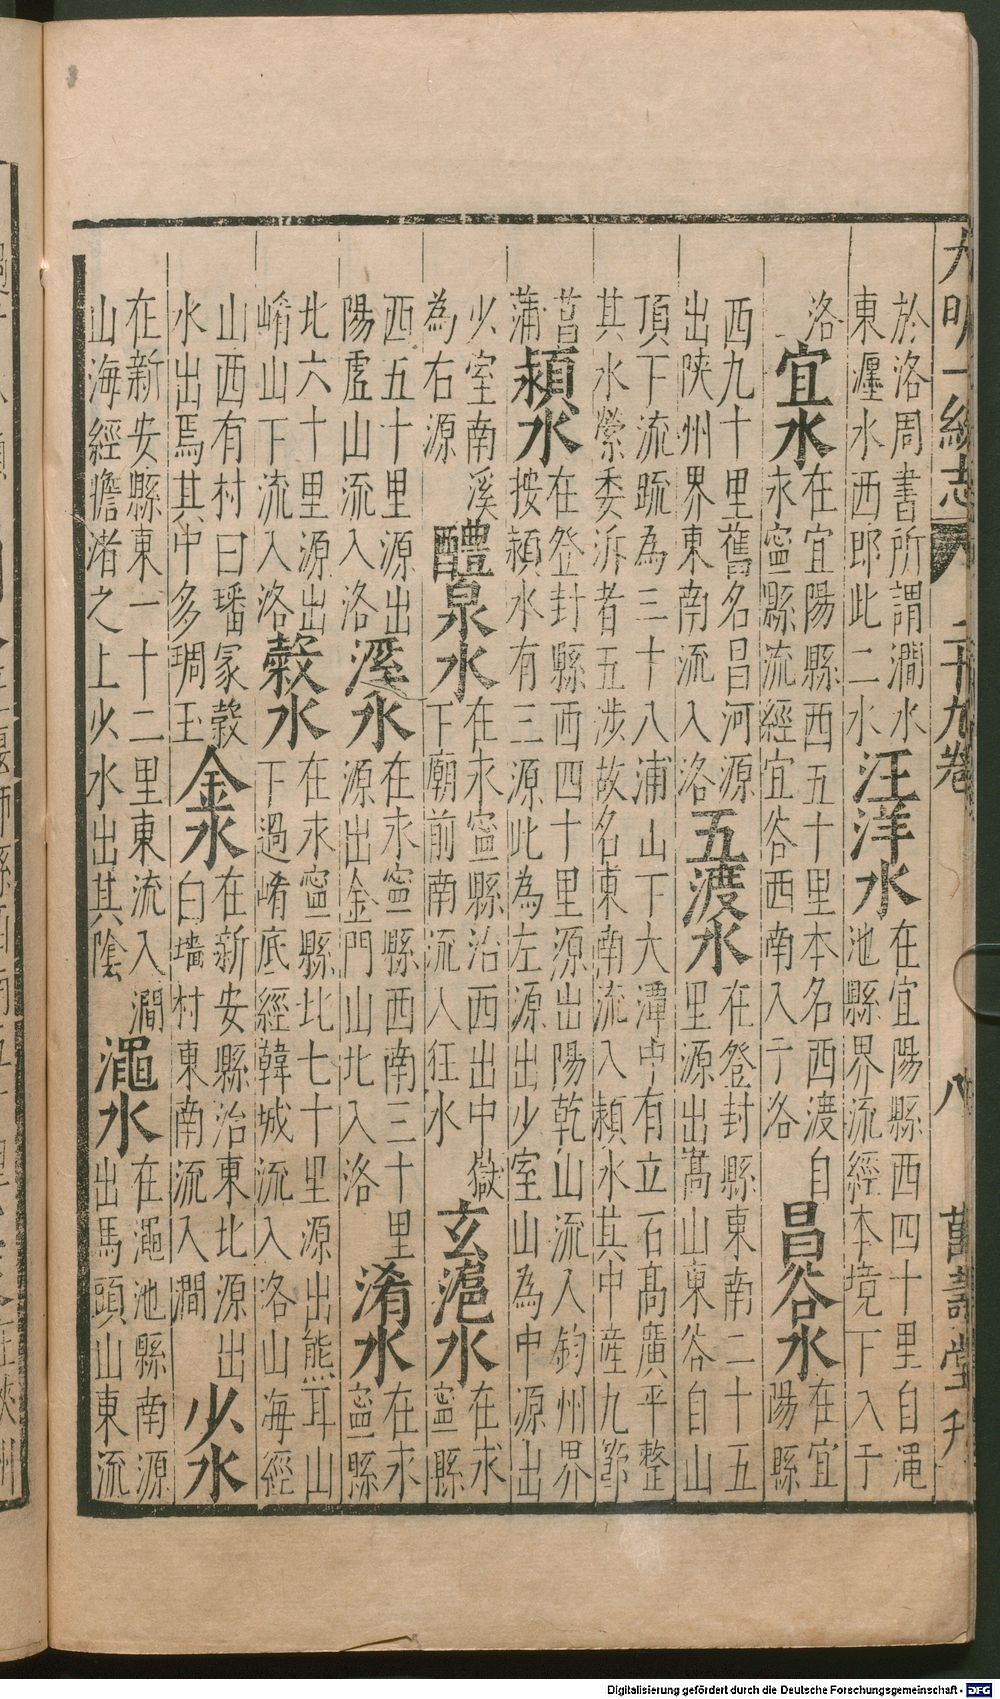 大明一統志 二十九卷 八 萬壽堂刋
於洛周書所謂澗水
東瀍水西即此二水
汪洋水
在宜陽縣西四十里自澠
池縣界流經本境下入于
洛
宜水
在宜陽縣西五十里本名西渡自
永寧縣流經宜谷西南入于洛
昌谷水
在宜
陽縣
西九十里舊名昌河源
出陝州界東南流入洛
五渡水
在登封縣東南二十五
里源出嵩山東谷自山
頂下流疏為三十八浦山下大潭中有立石高廣平整
其水縈委泝者五涉故名東南流入潁水其中産九節
菖
蒲
潁水
在登封縣西四十里源出陽乾山流入鈞州界
按潁水有三源此為左源出少室山為中源出
少室南溪
為右源
醴泉水
在永寧縣治西出中嶽
下廟前南流入狂水
玄滬水
在永
寧縣
西五十里源出
陽虛山流入洛
溼水
在永寧縣西南三十里
源出金門山北入洛
淆水
在永
寧縣
北六十里源出
崤山下流入洛
穀水
在永寧縣北七十里源出熊耳山
下過崤底經韓城流入洛山海經
山西有村曰墦冢穀
水出焉其中多琱玉
金水
在新安縣治東北源出
白墻村東南流入澗
少水
在新安縣東一十二里東流入澗
山海經瞻渚之上少水出其陰
澠水
在澠池縣南源
出馬頭山東流
Digitalisierung gefördert durch die Deutsche Forschungsgemeinschaft - DFG